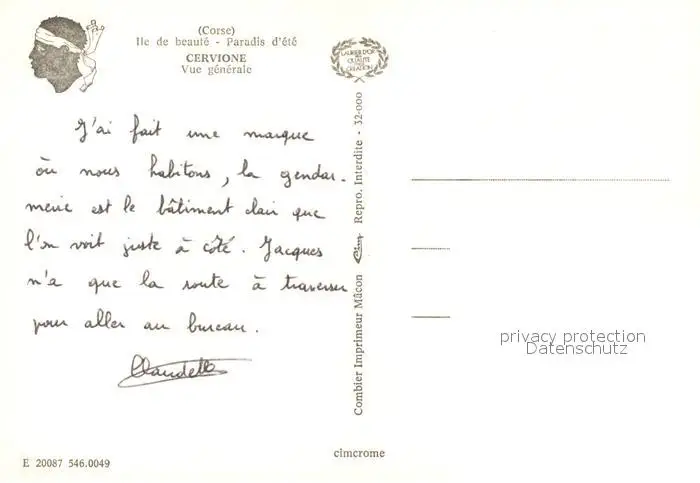 (Corse)
Ile de beauté - Paradis d'été
CERVIONE
Vue générale
LAURIER D'OR
DE
QUALITÉ
CREATION
J'ai fait une marque
où nous habitons, la gendar-
merie est le bâtiment clair que
l'on voit juste à côté. Jacques
n'a que la route à traverser
pour aller au bureau.
Claudette
Combier Imprimeur Mâcon Cim Repro. Interdite - 32-000
privacy protection
Datenschutz
cimcrome
E 20087 546.0049